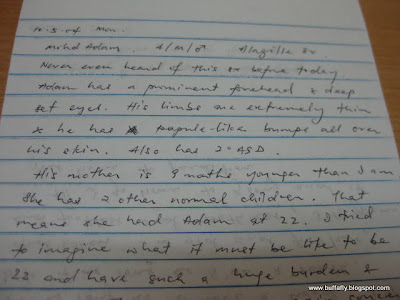 10-5-04 Mon.
Mohd Adam. A/M/♂ Alagille Sx.
Never even heard of this sx before today
Adam has a prominent forehead & deep
set eyes. His limbs are extremely thin
& he has papule-like bumps all over
his skin. Also has 2° ASD.
His mother is 9 mths younger than I am
She has 2 other normal children. That
means she had Adam at 22. I tried
to imagine what it must be like to be
22 and have such a huge burden &
www.buffatfly.blogspot.com